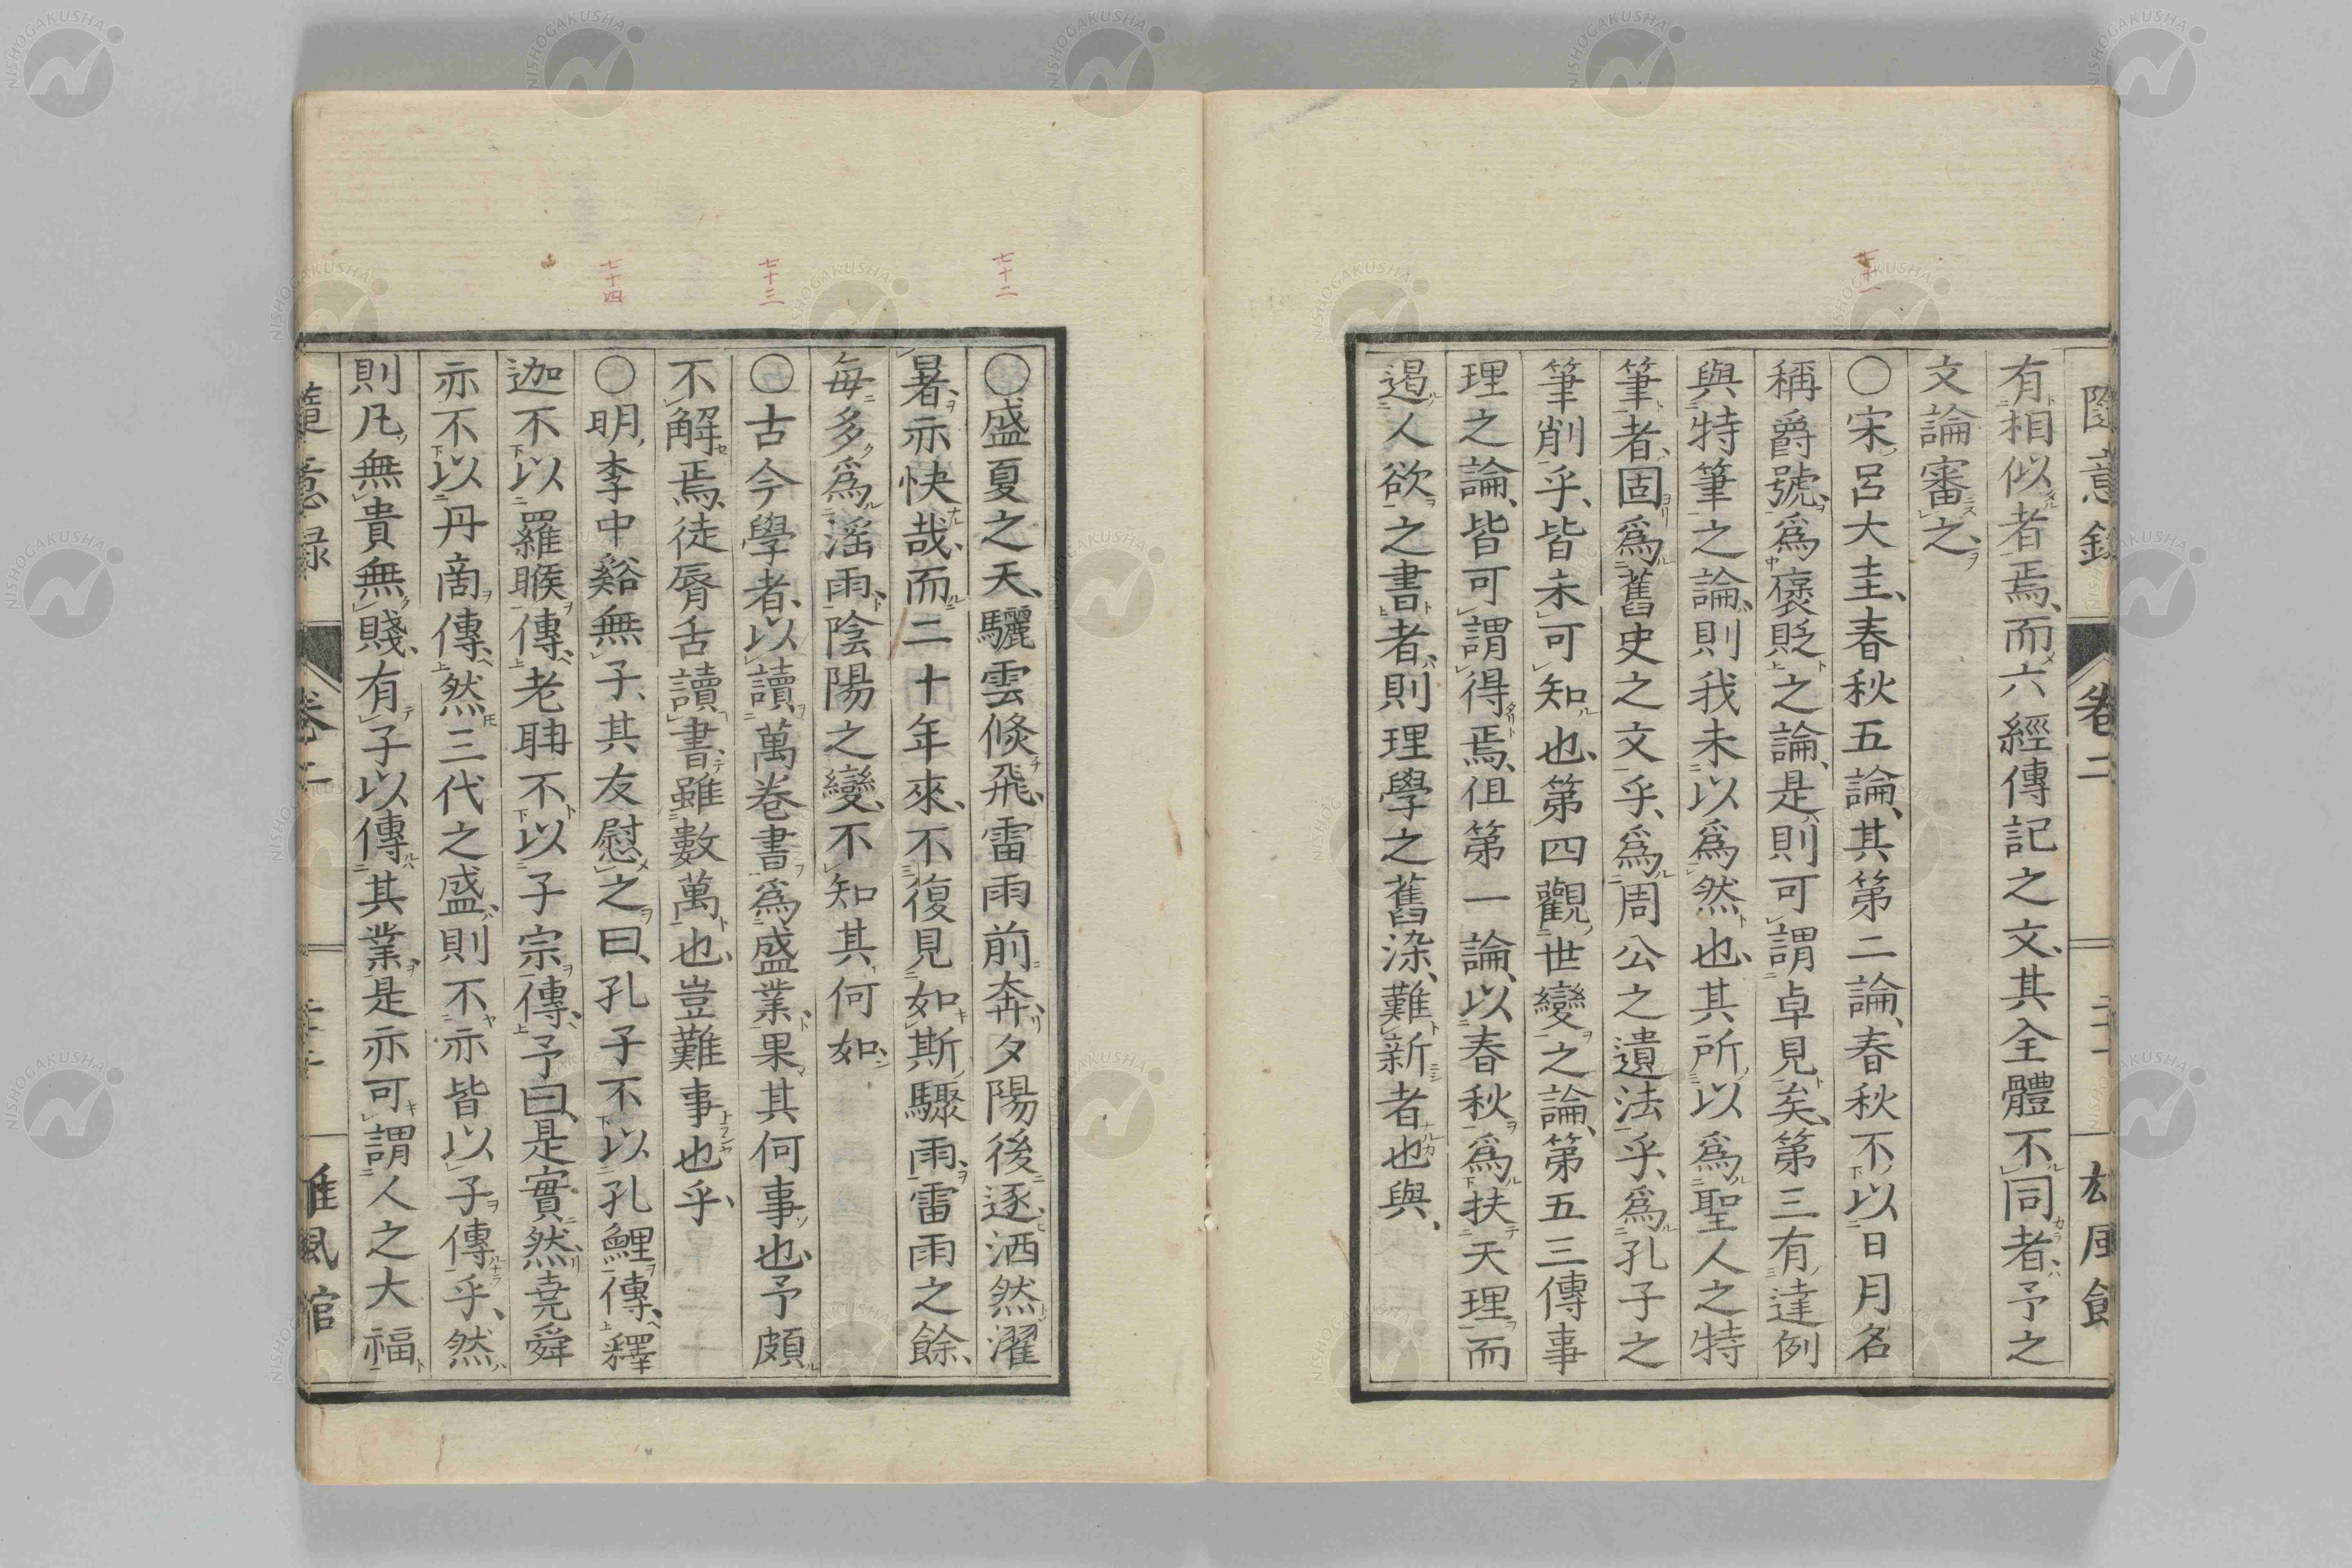 隨意錄 卷二 二十一 雄風館
有相似者焉、而六經傳記之文、其全體不同者、予之
文論審之、
七十一
〇宋呂大圭、春秋五論、其第二論、春秋不以日月名
稱爵號、爲襃貶之論、是則可謂卓見矣、第三有達例
與特筆之論、則我未以爲然也、其所以爲聖人之特
筆者、固爲舊史之文乎、爲周公之遺法乎、爲孔子之
筆削乎、皆未可知也、第四觀世變之論、第五三傳事
理之論、皆可謂得焉、但第一論、以春秋爲扶天理而
遏人欲之書者、則理學之舊染、難新者也與、
七十二
〇盛夏之天、驪雲倐飛、雷雨前奔、夕陽後逐、洒然濯
暑、亦快哉、而二十年來、不復見如斯驟雨、雷雨之餘、
每多爲滛雨、陰陽之變、不知其何如
七十三
〇古今學者、以讀萬卷書爲盛業、果其何事也、予頗
不解焉、徒脣舌讀書、雖數萬也、豈難事也乎、
七十四
〇明李中谿無子、其友慰之曰、孔子不以孔鯉傳、釋
迦不以羅睺傳、老聃不以子宗傳、予曰、是實然、堯舜
亦不以丹商傳、然三代之盛、則不亦皆以子傳乎、然
則凡無貴無賤、有子以傳其業、是亦可謂人之大福
隨意錄 卷二 雄風館